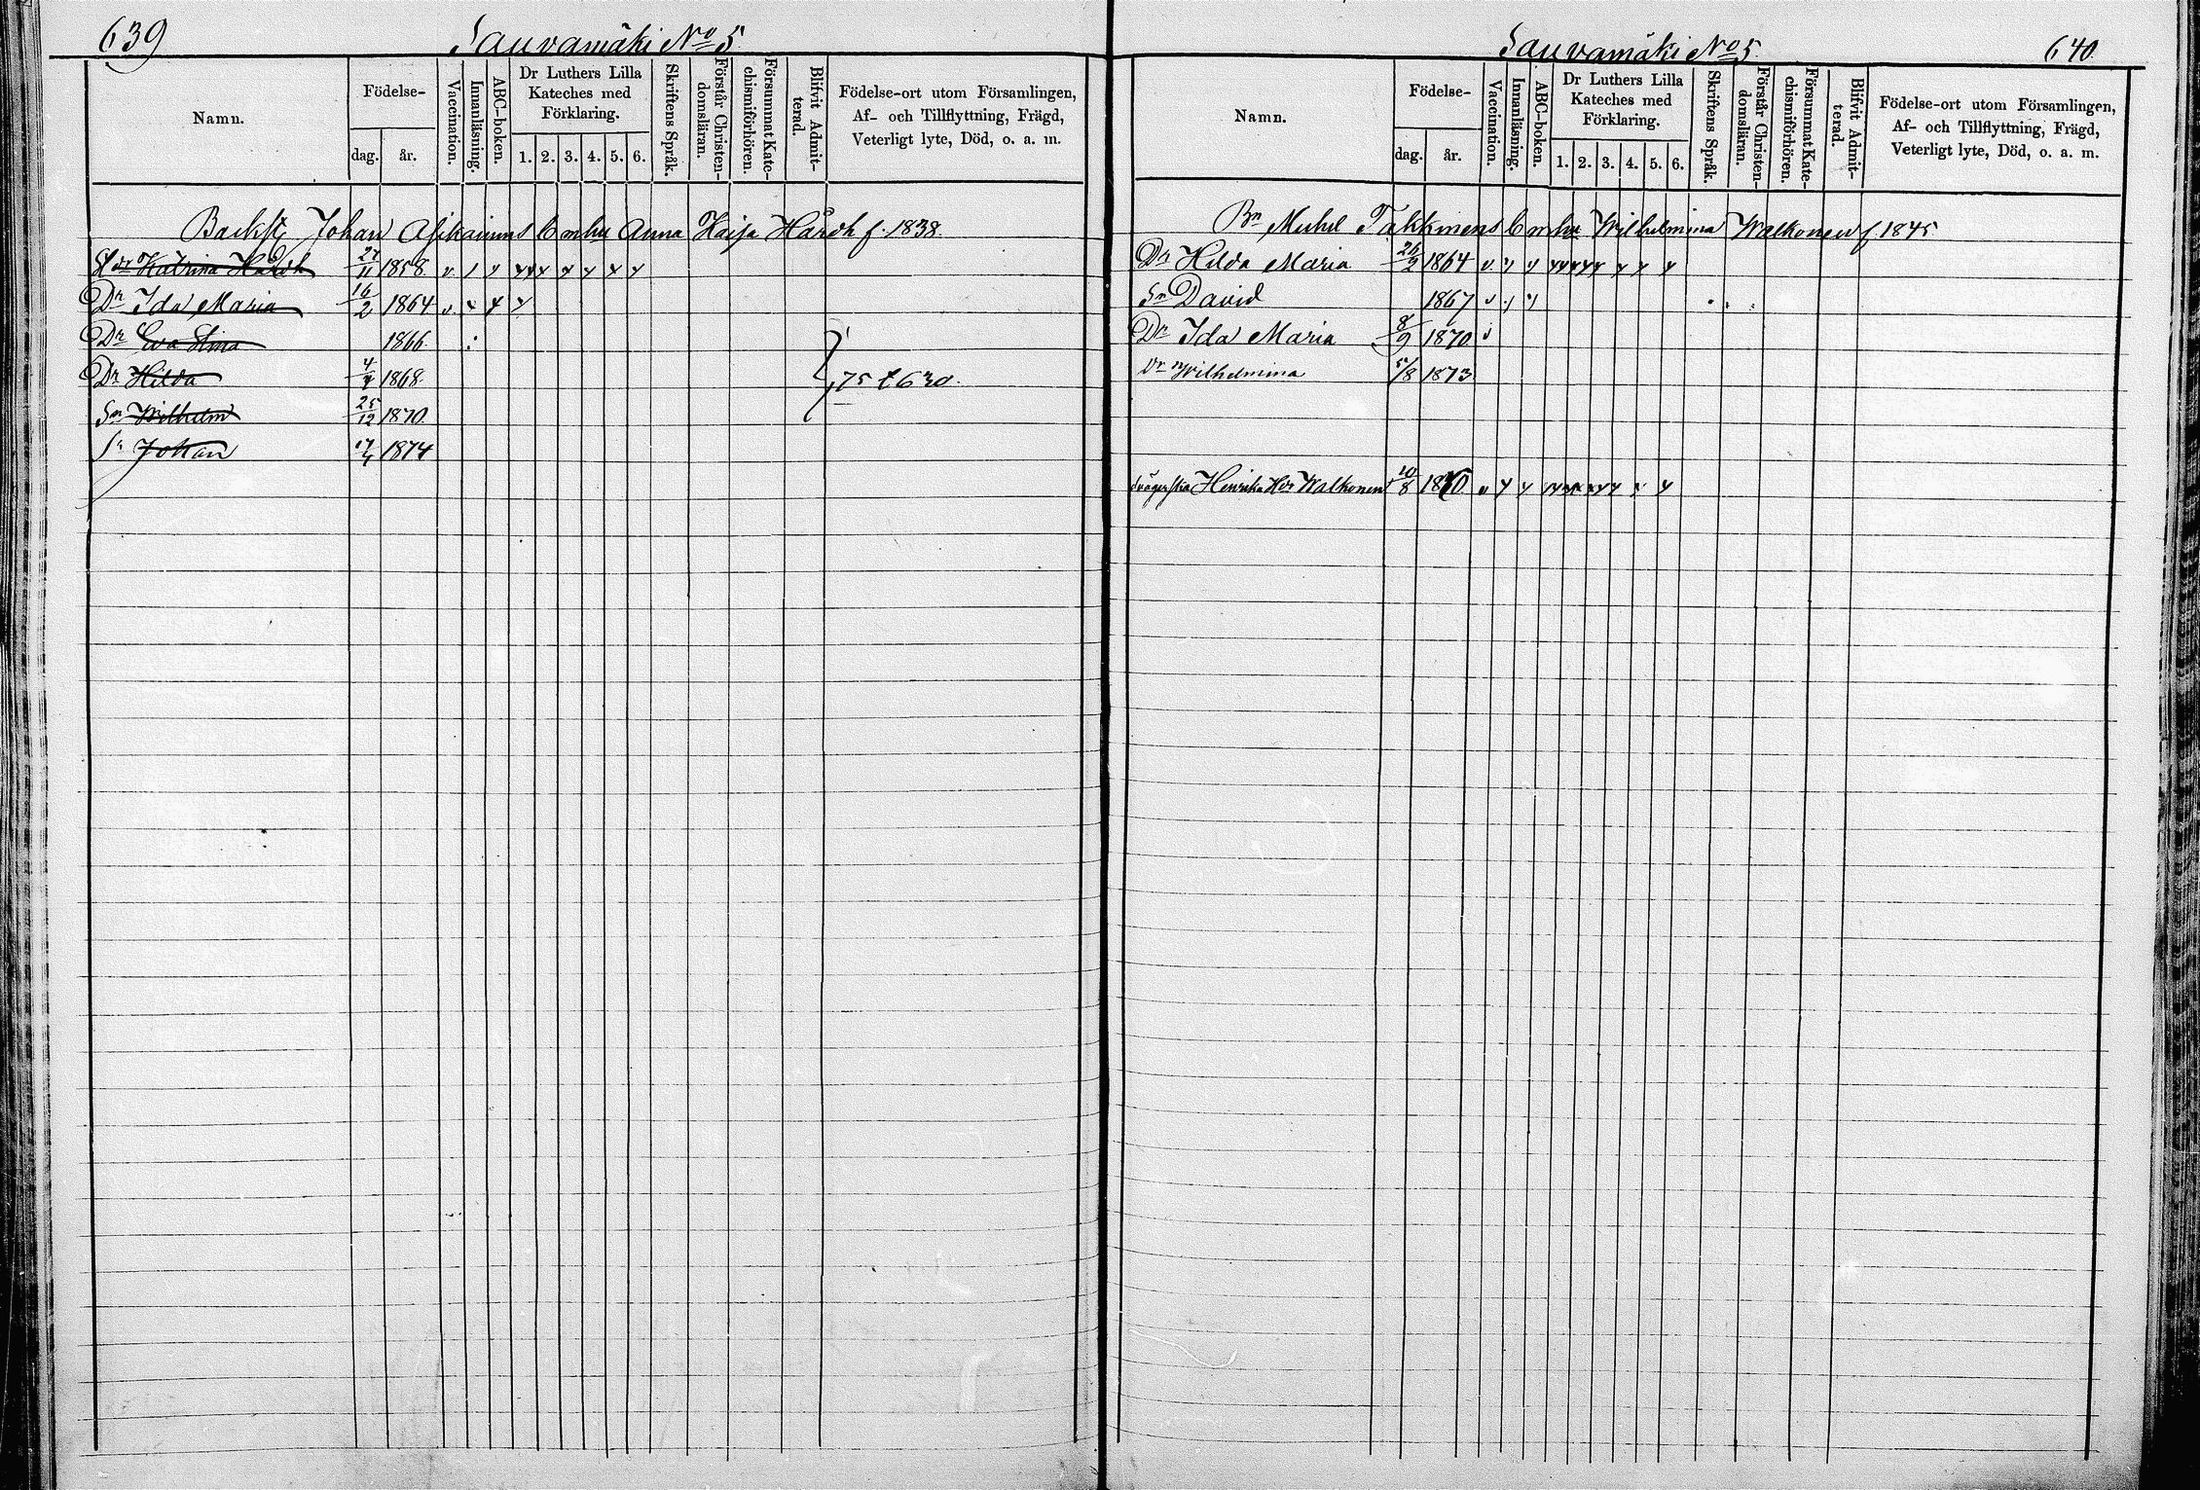 639
Sauvamäki No 5.
Namn.
Födelse-
dag.
år.
Vaccination.
Innanläsning.
ABC-boken.
Dr Luthers Lilla
Kateches med
Förklaring.
1. 2. 3. 4. 5. 6.
Skriftens Språk.
Förstår Christen-
domsläran.
Försummat Kate-
chismiförhören.
Blifvit Admit-
terad.
Födelse-ort utom Församlingen,
Af- och Tillflyttning, Frägd,
Veterligt lyte, Död, o. a. m.
Johan Asikainens Anna Kaisa Hårdh f. 1838.
Katrina Hårdh 27/11 1858
Dr Ida Maria 16/2 1864
Dr Eva Stina 1866
Dr Hilda 4/4 1868
75 t 630.
Sn Wilhelm 25/12 1870
Sn Johan 1874
Sauvamäki No 5.
640.
Namn.
Födelse-
dag.
år.
Vaccination.
Innanläsning.
ABC-boken.
Dr Luthers Lilla
Kateches med
Förklaring.
1. 2. 3. 4. 5. 6.
Skriftens Språk.
Förstår Christen-
domsläran.
Försummat Kate-
chismiförhören.
Blifvit Admit-
terad.
Födelse-ort utom Församlingen,
Af- och Tillflyttning, Frägd,
Veterligt lyte, Död, o. a. m.
Bn Michel Takkinens Wilhelmina Walkonen f. 1845
Dr Hilda Maria 26/2 1864
Sn David 1867
Dr Ida Maria 8/9 1870
Dr Wilhelmina 5/8 1873
Henrika Walkonen 10/8